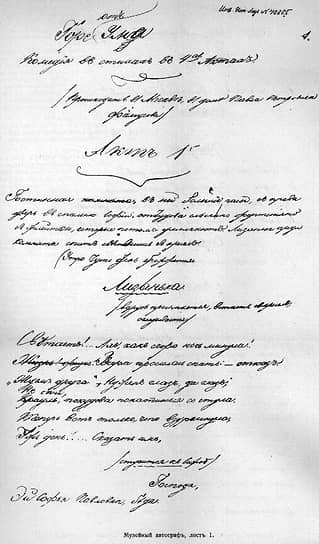 Горе отъ Ума
1.
Комедія въ стихахъ въ 4хъ Актахъ
(Происходитъ въ Москвѣ, въ домѣ Павла
Фамусова)
Актъ 1й
Гостинная комната, въ ней большіе часы, съ права
дверь въ спальню Софьи, откудова слышно фортопіано
съ флейтою, которыя потомъ умолкаютъ. Лизанька среди
комнаты спитъ свѣсившись съ креселъ.
(Утро чуть день брезжится)
Лизанька
(вдругъ просыпается, встаетъ съ креселъ,
оглядывается)
Свѣтаетъ!... Ахъ, какъ скоро ночь минула!
Вчера просилась спать: — отказъ.
„Ждемъ друга", Нуженъ глазъ, да глазъ,
Не спи, покудова не скатишься со стула.
Теперь вотъ только, что вздремнула,
Ужъ день!.... Сказать имъ,
Господа,
Эй Софья Павловна, бѣда.
Музейный автографъ, листъ 1.